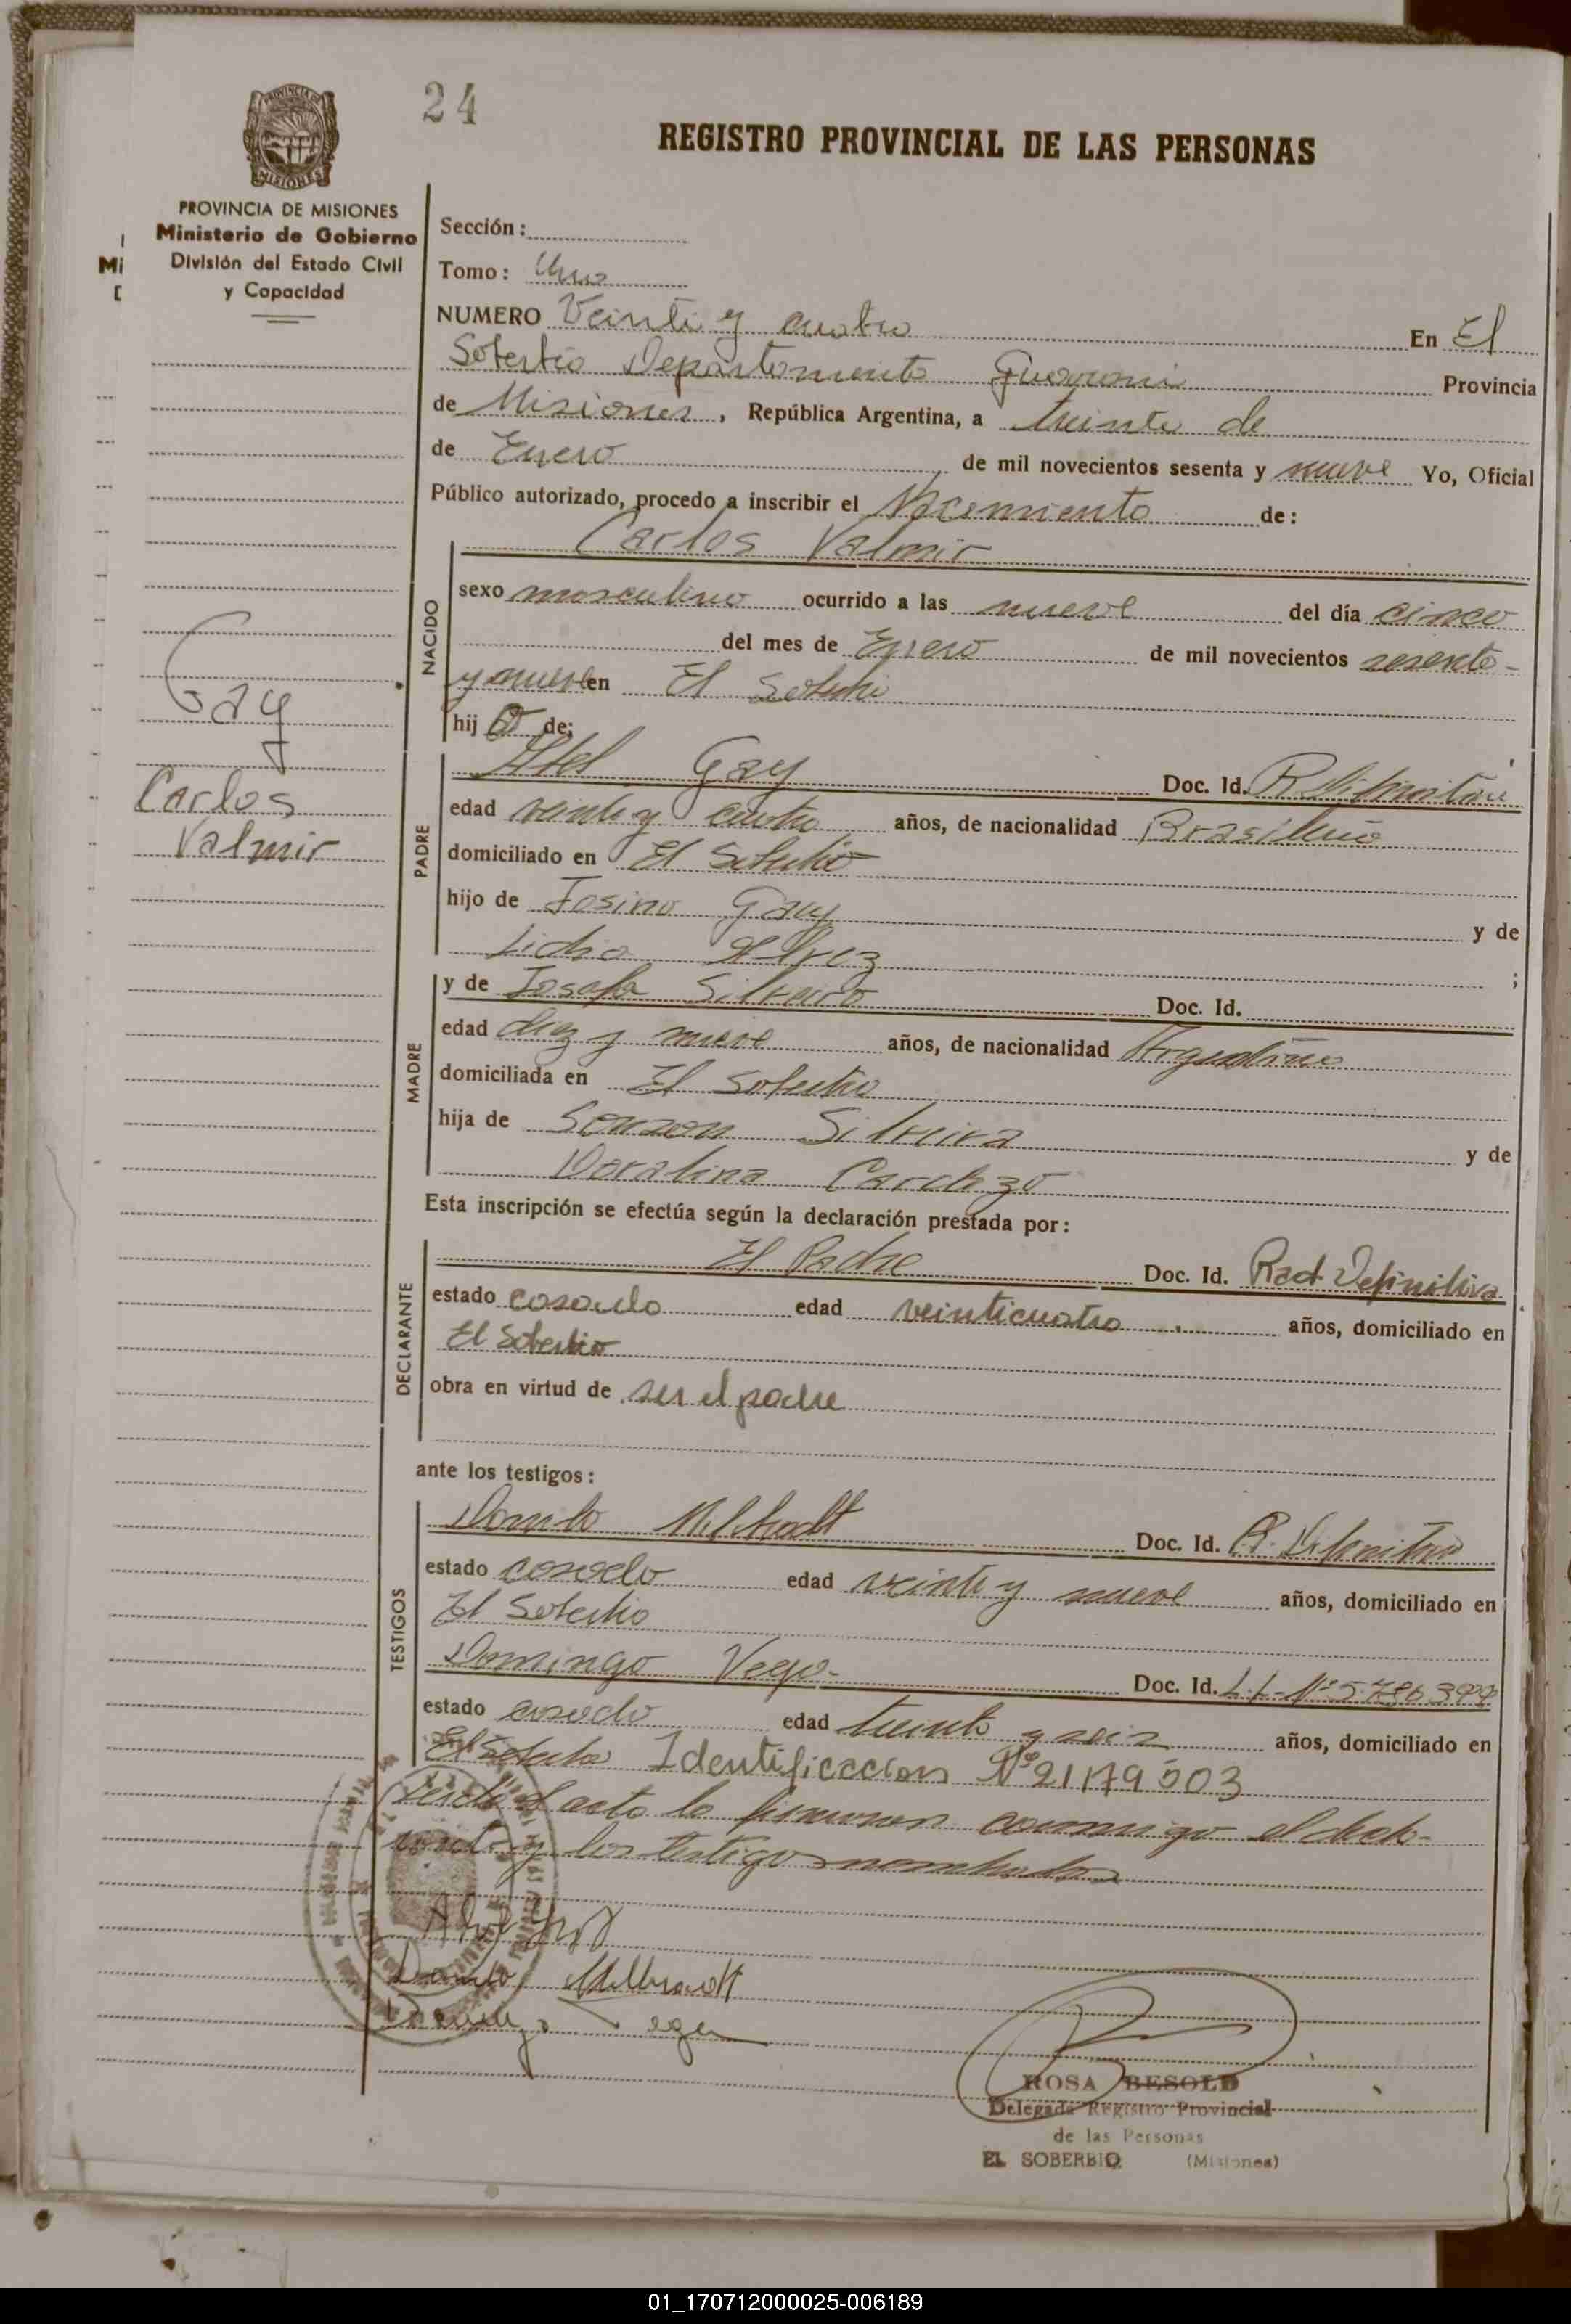 24
REGISTRO PROVINCIAL DE LAS PERSONAS
PROVINCIA DE MISIONES
Ministerio de Gobierno
División del Estado Civil
y Capacidad
Sección:
Tomo: Uno
NUMERO Veinti y cuatro En El
Soberbio Departamento Guarani Provincia
de Misiones, República Argentina, a treinta de
de Enero de mil novecientos sesenta y nueve Yo, Oficial
Público autorizado, procedo a inscribir el Nacimiento de:
Carlos Valmir
NACIDO
sexo masculino ocurrido a las nueve del día cinco
del mes de Enero de mil novecientos sesenta-
y nueve en El Soberbio
hijo de:
Gay
Carlos
Valmir
PADRE
Abel Gay Doc. Id. R. Definitiva
edad veinti y cuatro años, de nacionalidad Brasileño
domiciliado en El Soberbio
hijo de Josino Gay y de
Lidia Alvez ;
MADRE
y de Josafa Silveira Doc. Id.
edad diez y nueve años, de nacionalidad Argentina
domiciliada en El Soberbio
hija de Silveira y de
Doralina Cardozo
Esta inscripción se efectúa según la declaración prestada por:
DECLARANTE
El Padre Doc. Id. Rad. Definitiva
estado casado edad veinticuatro años, domiciliado en
El Soberbio
obra en virtud de ser el padre
ante los testigos:
TESTIGOS
Danilo Milbradt Doc. Id. R. Definitiva
estado casado edad veinti y nueve años, domiciliado en
El Soberbio
Domingo Vega- Doc. Id. L.E. Nº
estado casado edad treinta y seis años, domiciliado en
El Soberbio Identificacion Nº 21179503
Leida el acto la firman conmigo el decla-
rante y los testigos nombrados
Abel Gay
Danilo Milbradt
Domingo Vega
ROSA BESOLD
Delegada Registro Provincial
de las Personas
EL SOBERBIO (Misiones)
01_170712000025-006189